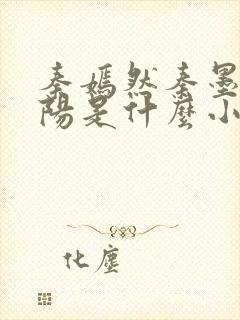 秦嫣然秦墨
陽是什麼小
化塵